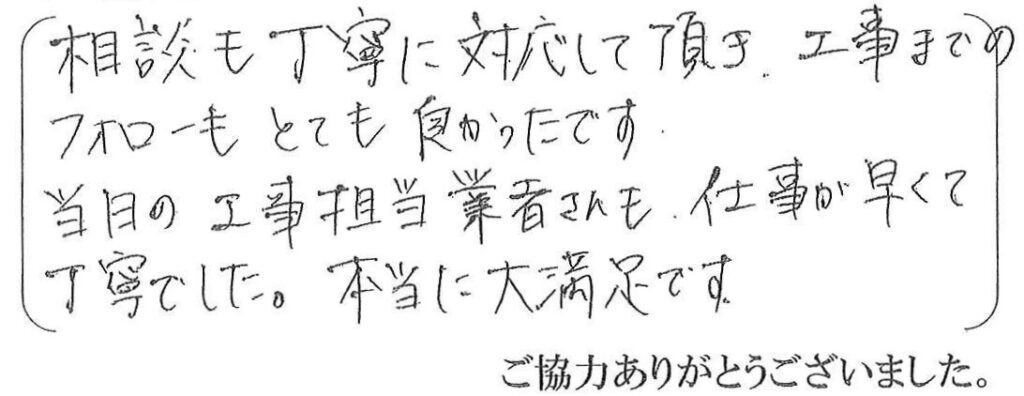 相談も丁寧に対応して頂き、工事までの
フォローもとても良かったです.
当日の工事担当業者さんも、仕事が早くて
丁寧でした。本当に大満足です
ご協力ありがとうございました。